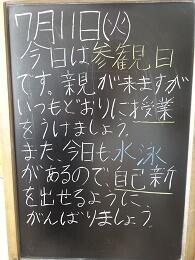 7月11日(火)
今日は参観日
です。親が来ますが
いつもどおりに授業
をうけましょう。
また、今日も水泳
があるので、自己新
を出せるように、
がんばりましょう。